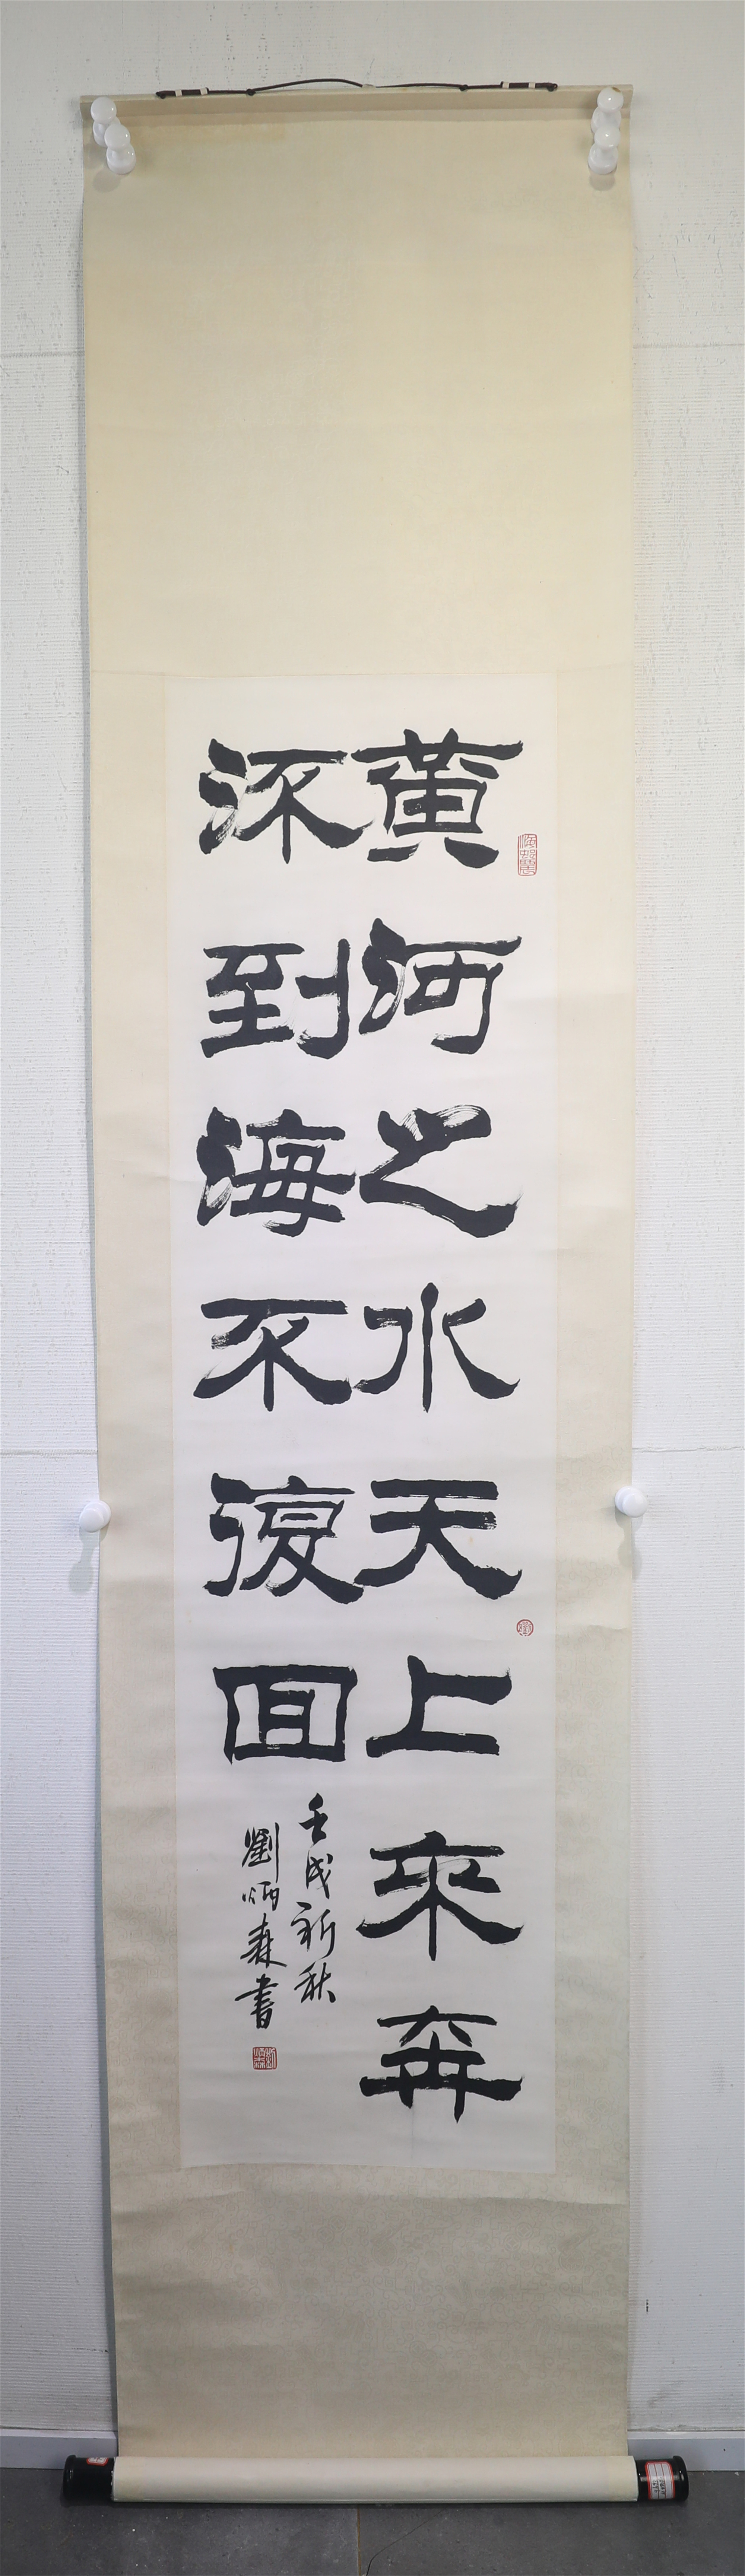 黄河之水天上來奔
流到海不復回
壬戌新秋
劉炳森書